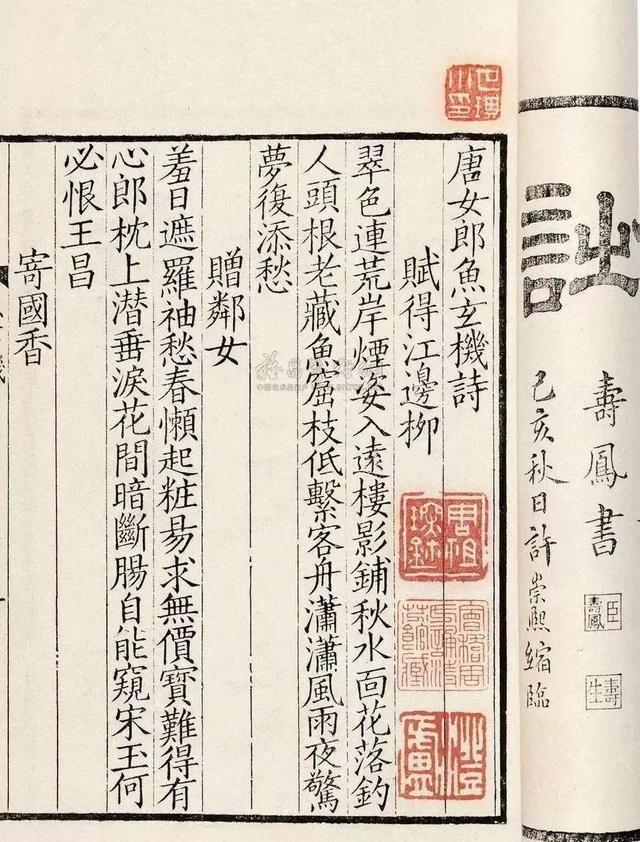 壽鳳書
己亥秋日許崇熙縮臨
臣壽鳳
壽生
唐女郎魚玄機詩
賦得江邊柳
翠色連荒岸煙姿入遠樓影鋪秋水靣花落釣
人頭根老藏魚窟枝低繫客舟瀟瀟風雨夜驚
夢復添愁
贈鄰女
羞日遮羅袖愁春懶起粧易求無價寶難得有
心郎枕上潜垂淚花間暗斷腸自能窺宋玉何
必恨王昌
寄國香